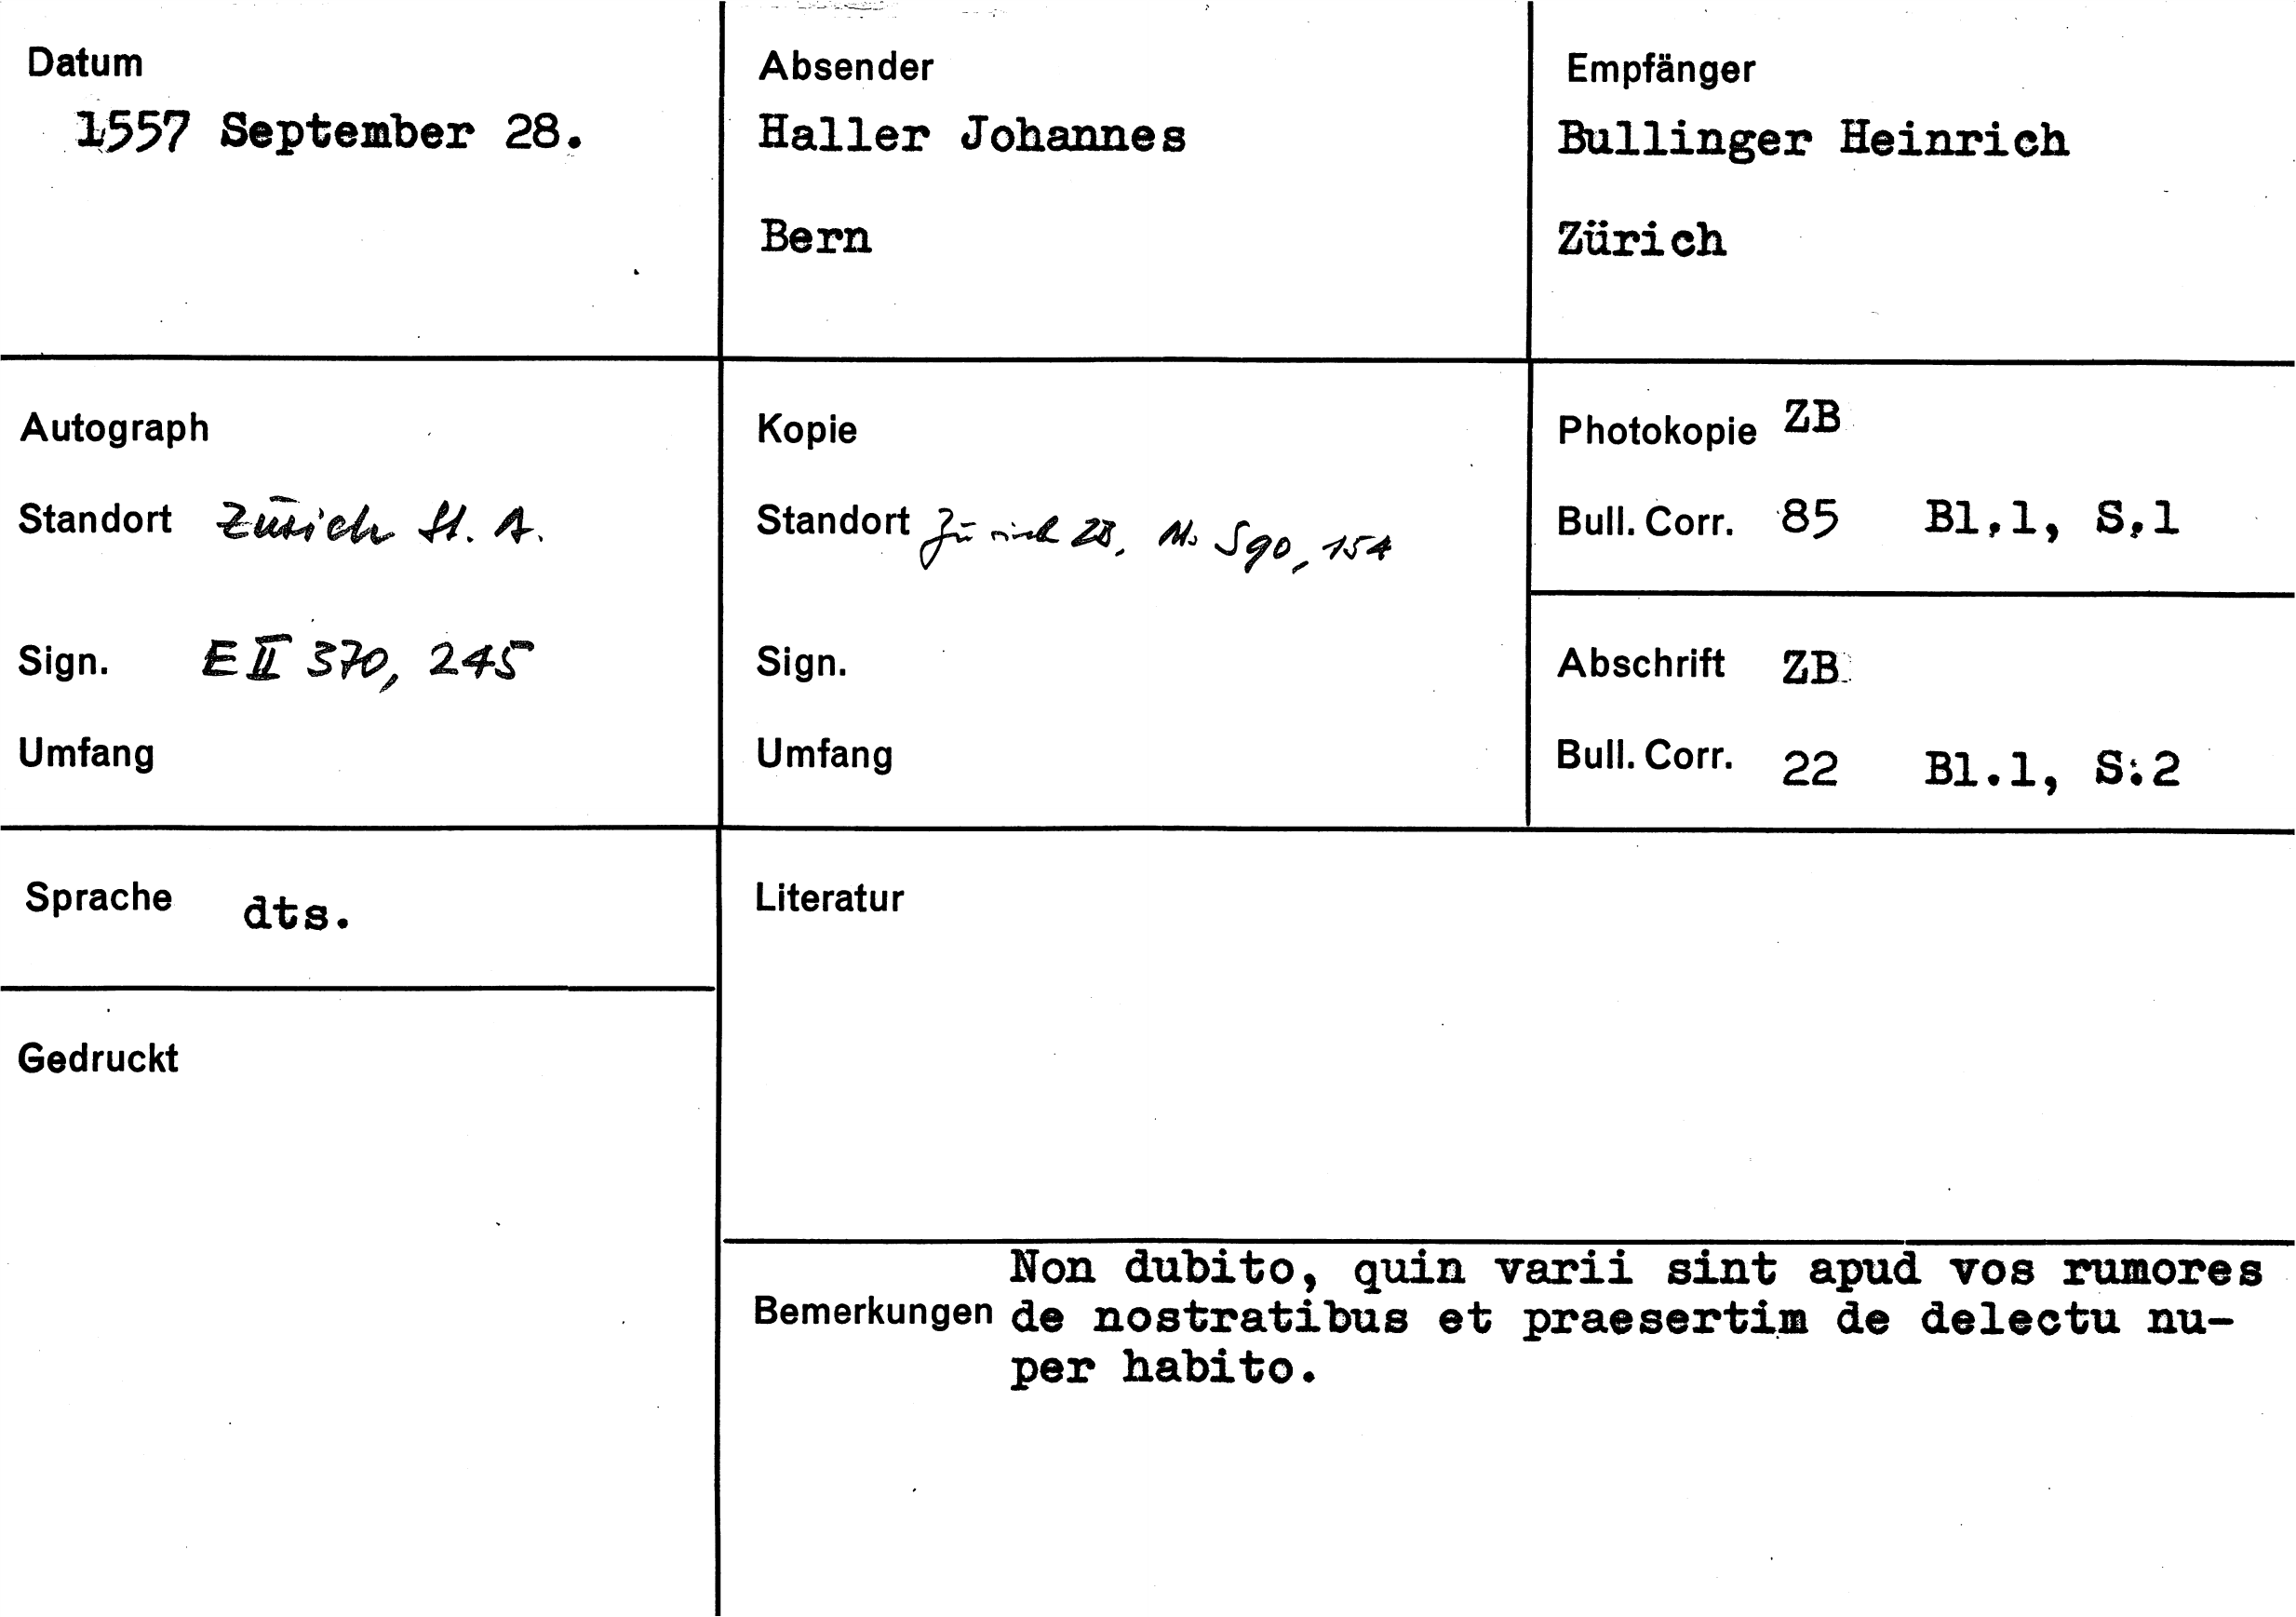 Datum
1557 September 28.
Absender
Haller Johannes
Bern
Empfänger
Bullinger Heinrich
Zürich
Autograph
Standort Zürich St. A.
Sign. E II 370, 245
Umfang
Kopie
Standort Zürich ZB, Ms S 90, 154
Sign.
Umfang
Photokopie ZB
Bull. Corr. 85 Bl.1, S.1
Abschrift ZB
Bull. Corr. 22 Bl.1, S.2
Sprache dts.
Gedruckt
Literatur
Bemerkungen
Non dubito, quin varii sint apud vos rumores
de nostratibus et praesertim de delectu nu-
per habito.